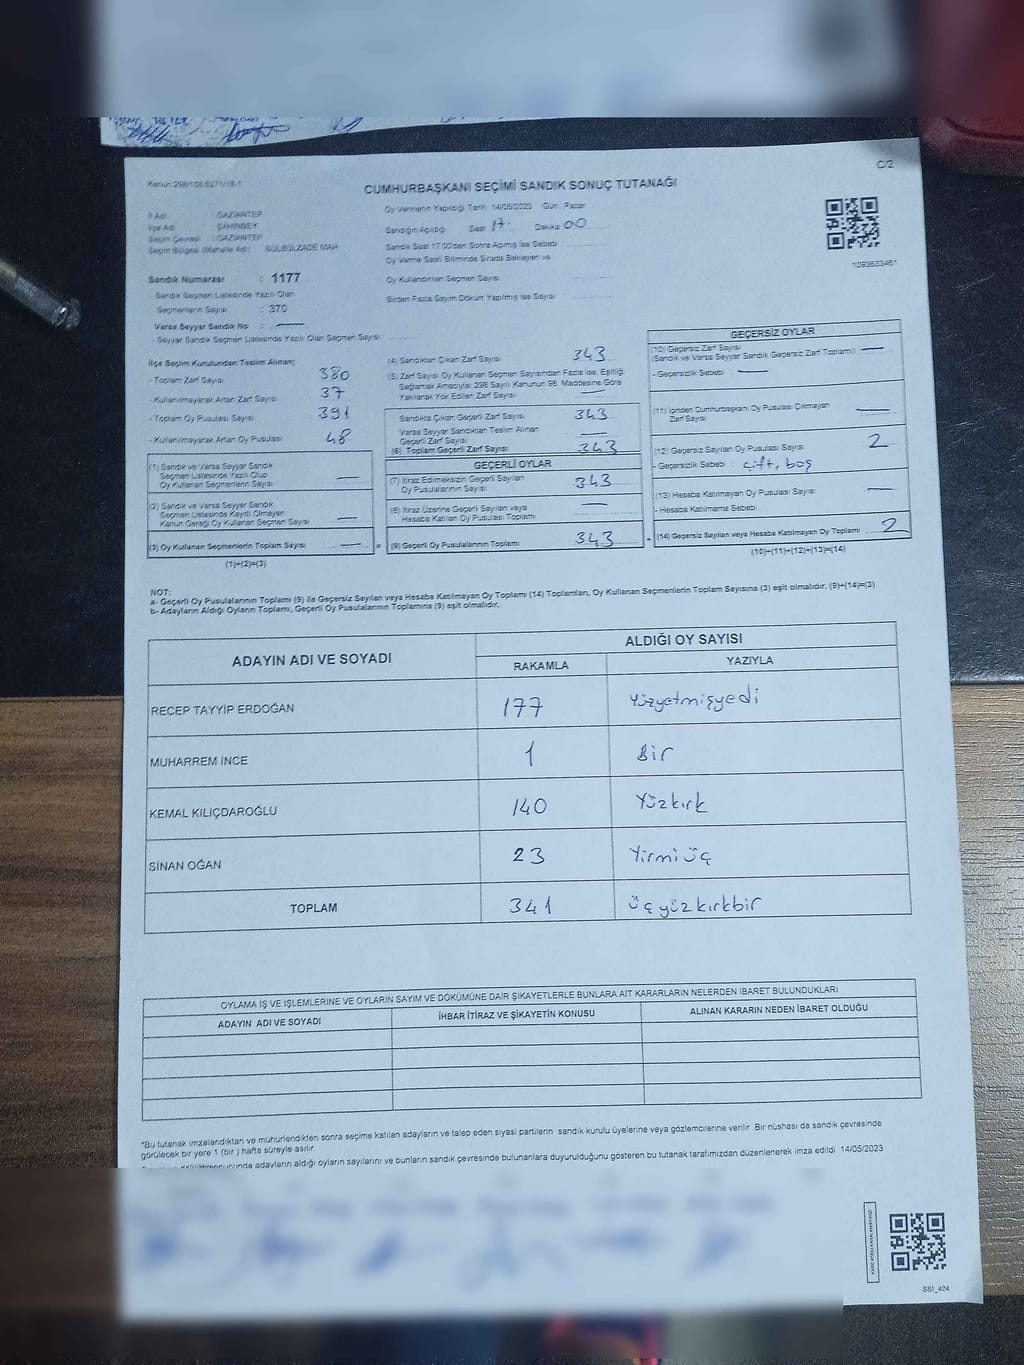 C/2
Kanun:298/108,6271/18-1
CUMHURBAŞKANI SEÇİMİ SANDIK SONUÇ TUTANAĞI
İl Adı : GAZİANTEP
İlçe Adı : ŞAHİNBEY
Seçim Çevresi : GAZİANTEP
Seçim Bölgesi (Mahalle Adı) : BÜLBÜLZADE MAH.
Sandık Numarası : 1177
- Sandık Seçmen Listesinde Yazılı Olan
Seçmenlerin Sayısı : 370
Varsa Seyyar Sandık No :
- Seyyar Sandık Seçmen Listesinde Yazılı Olan Seçmen Sayısı
Oy Vermenin Yapıldığı Tarih: 14/05/2023 Gün: Pazar
Sandığın Açıldığı Saat 17. Dakika 00
Sandık Saat 17.00'den Sonra Açılmış İse Sebebi
Oy Verme Saati Bitiminde Sırada Bekleyen ve
Oy Kullandırılan Seçmen Sayısı
Birden Fazla Sayım Döküm Yapılmış İse Sayısı
1093633461
İlçe Seçim Kurulundan Teslim Alınan;
- Toplam Zarf Sayısı 380
- Kullanılmayarak Artan Zarf Sayısı 37
- Toplam Oy Pusulası Sayısı 391
- Kullanılmayarak Artan Oy Pusulası 48
(1) Sandık ve Varsa Seyyar Sandık
Seçmen Listesinde Yazılı Olup
Oy Kullanan Seçmenlerin Sayısı —
(2) Sandık ve Varsa Seyyar Sandık
Seçmen Listesinde Kayıtlı Olmayan
Kanun Gereği Oy Kullanan Seçmen Sayısı —
(3) Oy Kullanan Seçmenlerin Toplam Sayısı — =
(1)+(2)=(3)
(4) Sandıktan Çıkan Zarf Sayısı 343
(5) Zarf Sayısı Oy Kullanan Seçmen Sayısından Fazla İse, Eşitliği
Sağlamak Amacıyla; 298 Sayılı Kanunun 98. Maddesine Göre
Yakılarak Yok Edilen Zarf Sayısı —
Sandıkta Çıkan Geçerli Zarf Sayısı 343
Varsa Seyyar Sandıktan Teslim Alınan
Geçerli Zarf Sayısı —
(6) Toplam Geçerli Zarf Sayısı 343
GEÇERLİ OYLAR
(7) İtiraz Edilmeksizin Geçerli Sayılan
Oy Pusulalarının Sayısı 343
(8) İtiraz Üzerine Geçerli Sayılan veya
Hesaba Katılan Oy Pusulası Toplamı —
(9) Geçerli Oy Pusulalarının Toplamı 343
GEÇERSİZ OYLAR
(10) Geçersiz Zarf Sayısı
(Sandık ve Varsa Seyyar Sandık Geçersiz Zarf Toplamı) —
- Geçersizlik Sebebi : —
(11) İçinden Cumhurbaşkanı Oy Pusulası Çıkmayan
Zarf Sayısı —
(12) Geçersiz Sayılan Oy Pusulası Sayısı 2
- Geçersizlik Sebebi : çift, boş
(13) Hesaba Katılmayan Oy Pusulası Sayısı —
- Hesaba Katılmama Sebebi
(14) Geçersiz Sayılan veya Hesaba Katılmayan Oy Toplamı 2
(10)+(11)+(12)+(13)=(14)
NOT:
a- Geçerli Oy Pusulalarının Toplamı (9) ile Geçersiz Sayılan veya Hesaba Katılmayan Oy Toplamı (14) Toplamları, Oy Kullanan Seçmenlerin Toplam Sayısına (3) eşit olmalıdır. (9)+(14)=(3)
b- Adayların Aldığı Oyların Toplamı, Geçerli Oy Pusulalarının Toplamına (9) eşit olmalıdır.
ADAYIN ADI VE SOYADI ALDIĞI OY SAYISI
RAKAMLA YAZIYLA
RECEP TAYYİP ERDOĞAN 177 Yüzyetmişyedi
MUHARREM İNCE 1 Bir
KEMAL KILIÇDAROĞLU 140 Yüzkırk
SİNAN OĞAN 23 Yirmiüç
TOPLAM 341 üçyüzkırkbir
OYLAMA İŞ VE İŞLEMLERİNE VE OYLARIN SAYIM VE DÖKÜMÜNE DAİR ŞİKAYETLERLE BUNLARA AİT KARARLARIN NELERDEN İBARET BULUNDUKLARI
ADAYIN ADI VE SOYADI İHBAR İTİRAZ VE ŞİKAYETİN KONUSU ALINAN KARARIN NEDEN İBARET OLDUĞU
*Bu tutanak imzalandıktan ve mühürlendikten sonra seçime katılan adayların ve talep eden siyasi partilerin sandık kurulu üyelerine veya gözlemcilerine verilir. Bir nüshası da sandık çevresinde
görülecek bir yere 1 (bir) hafta süreyle asılır.
adayların aldığı oyların sayılarını ve bunların sandık çevresinde bulunanlara duyurulduğunu gösteren bu tutanak tarafımızdan düzenlenerek imza edildi. 14/05/2023
SSI_404